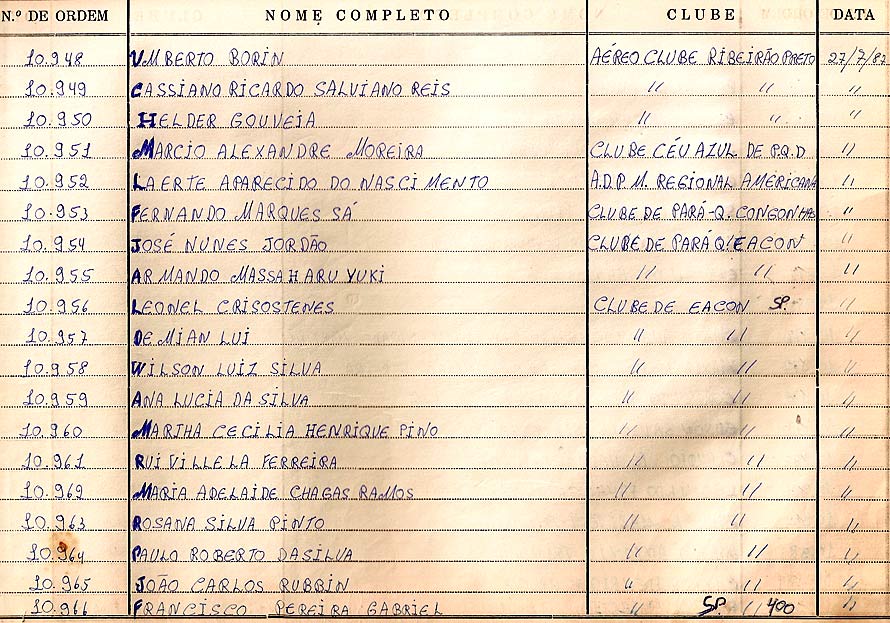 N.º DE ORDEM NOME COMPLETO CLUBE DATA
10.948 UMBERTO BORIN AÉREO CLUBE RIBEIRÃO PRETO 27/7/87
10.949 CASSIANO RICARDO SALVIANO REIS " " "
10.950 HELDER GOUVEIA " " "
10.951 MARCIO ALEXANDRE MOREIRA CLUBE CÉU AZUL DE P.Q.D "
10.952 LAERTE APARECIDO DO NASCIMENTO A.D.P.M. REGIONAL AMERICANA "
10.953 FERNANDO MARQUES SÁ CLUBE DE PARÁ-Q. CONGONHAS "
10.954 JOSÉ NUNES JORDÃO CLUBE DE PARÁ Q/EACON "
10.955 ARMANDO MASSAHARU YUKI " " "
10.956 LEONEL CRISOSTENES CLUBE DE EACON SP. "
10.957 DEMIAN LUI " " "
10.958 WILSON LUIZ SILVA " " "
10.959 ANA LUCIA DA SILVA " " "
10.960 MARTHA CECILIA HENRIQUE PINO " " "
10.961 RUI VILLELA FERREIRA " " "
10.962 MARIA ADELAIDE CHAGAS RAMOS " " "
10.963 ROSANA SILVA PINTO " " "
10.964 PAULO ROBERTO DA SILVA " " "
10.965 JOÃO CARLOS RUBBIN " " "
10.966 FRANCISCO PEREIRA GABRIEL " SP. " 400 "